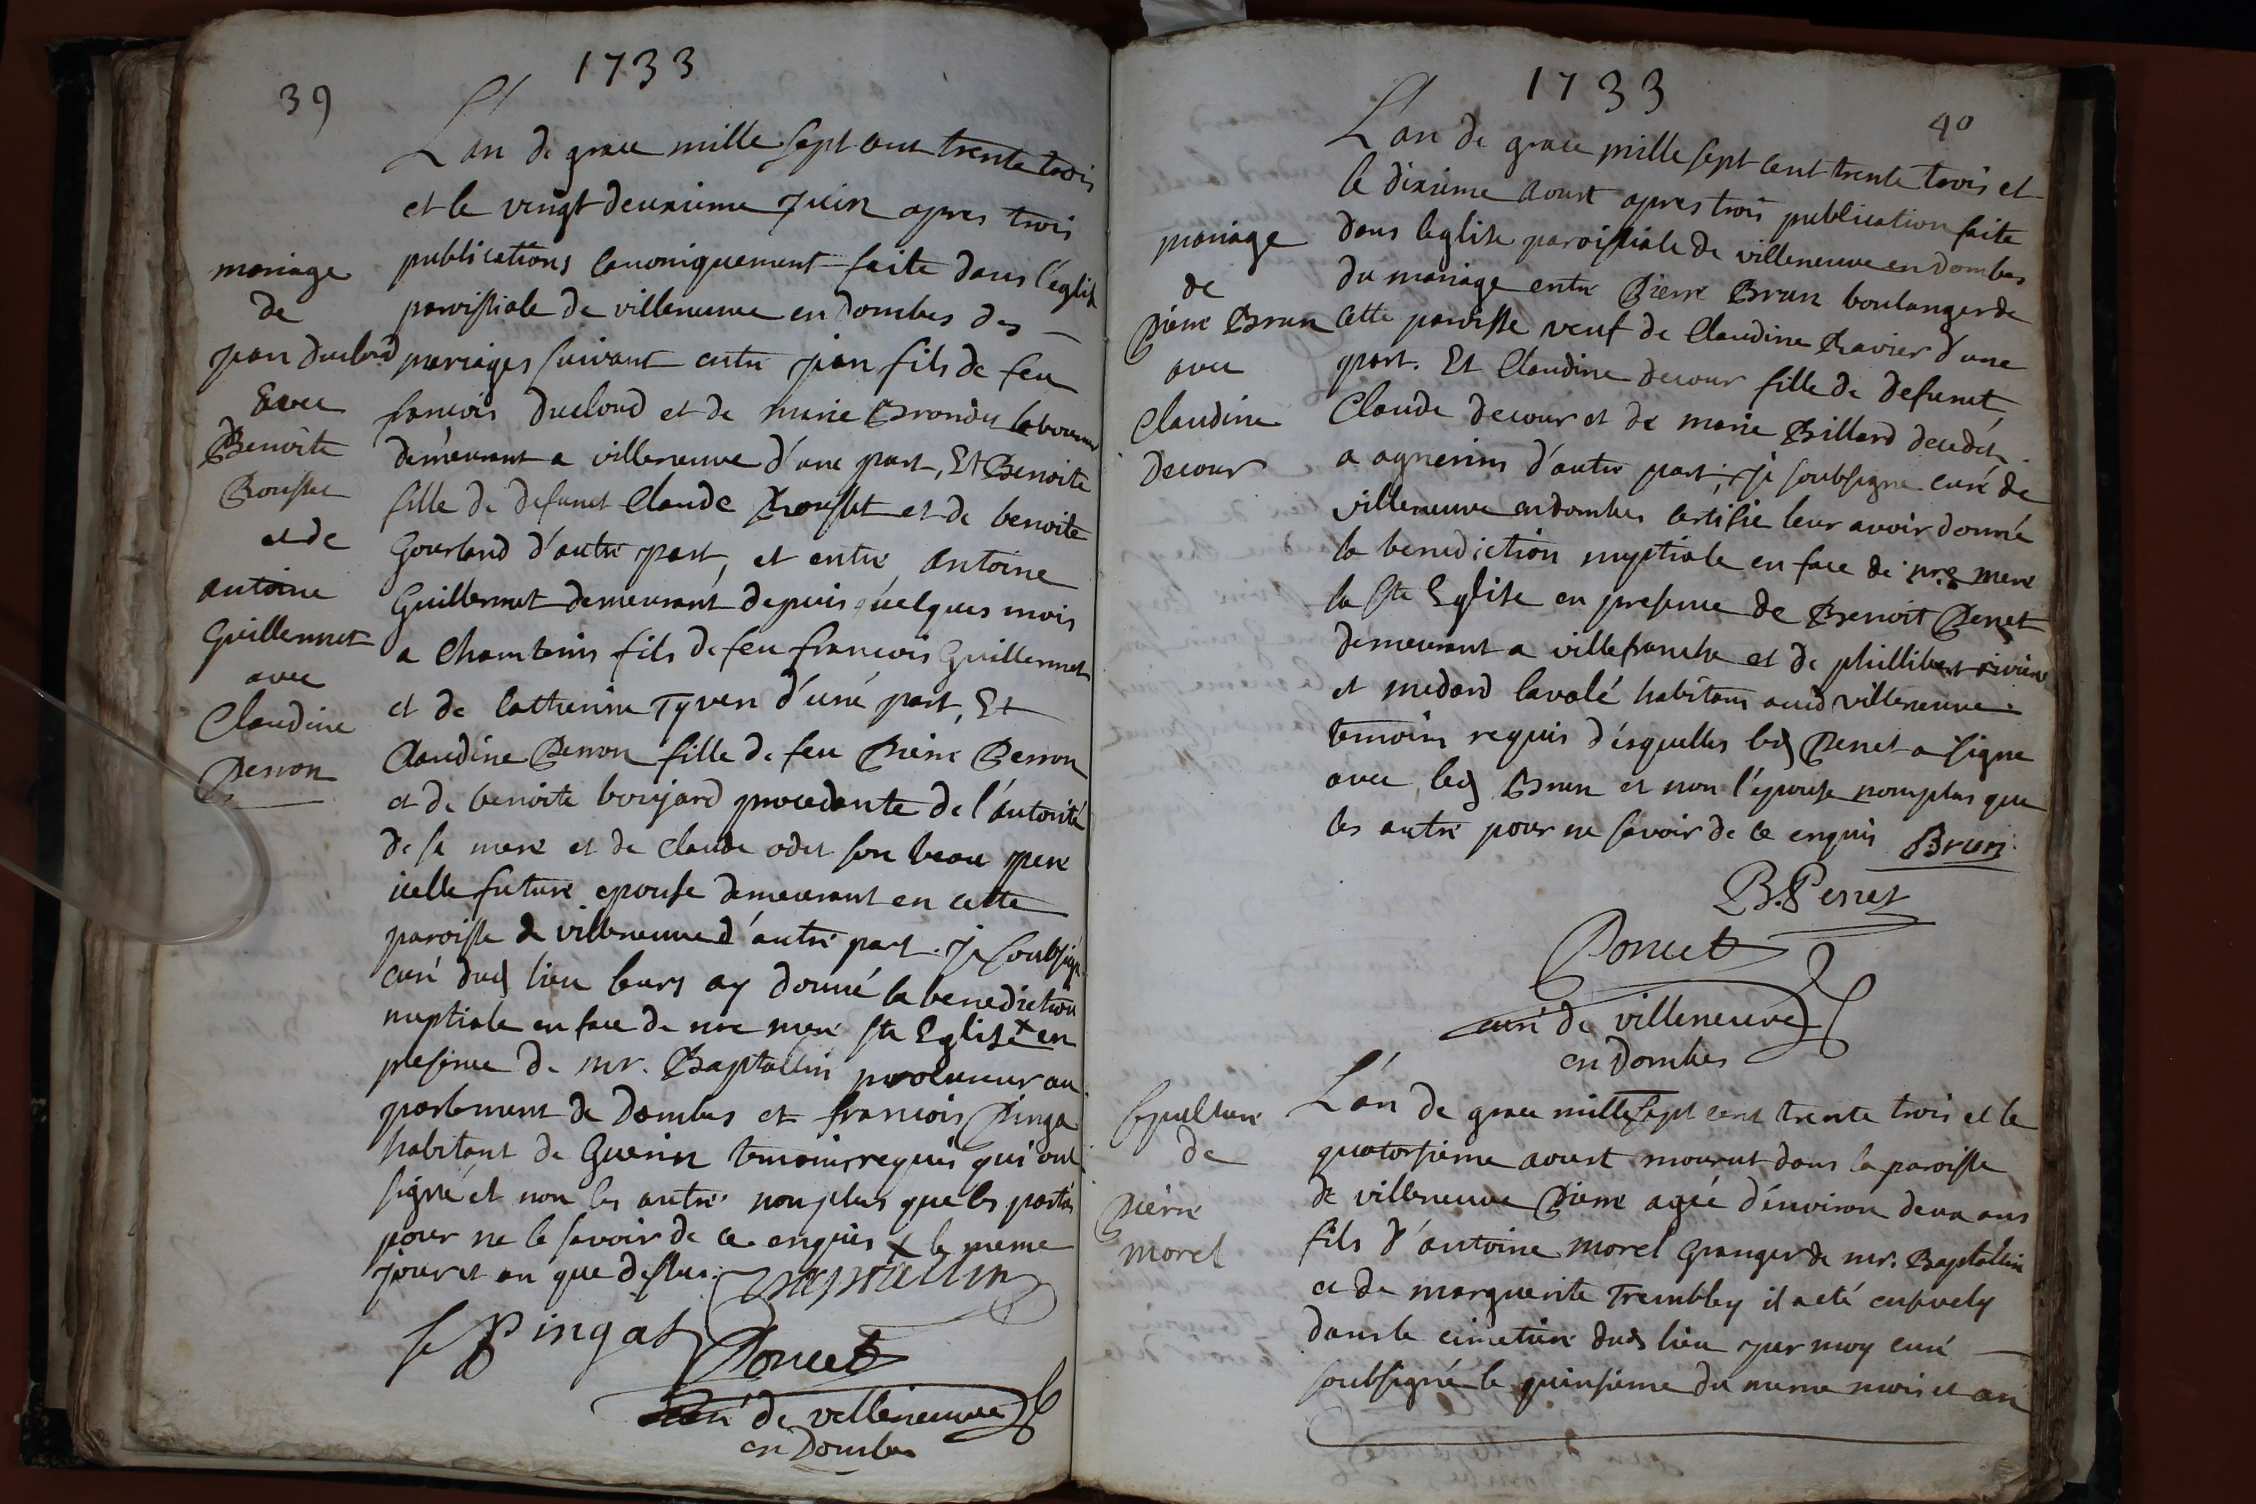 1733
39
L'an de grace mille sept cent trente trois
et le vingt deuxieme Juin apres trois
publications canoniquement faite dans l'eglise
paroissiale de villeneuve en Dombes des
mariages suivant entre jean fils de feu
francois Duclond et de marie Brondy laboureur
demeurant a villeneuve d'une part, Et Benoite
fille de defunct Claude Rousset et de benoite
Gourland d'autre part, et entre antoine
Guillermet demeurant depuis quelques mois
a Chanteins fils de feu francois Guillermet
et de Catherine Tyven d'une part, Et
Claudine Perron fille de feu Pierre Perron
et de benoite boujard procedante de l'autorité
de sa mere et de Claude odet son beau pere
icelle future epouse demeurant en cette
paroisse de villeneuve d'autre part. je soubsigné
curé dud lieu leurs ay donné la benediction
nuptiale en face de nre mere ste Eglise x en
presence de mr. Baptallin procureur au
parlement de Dombes et francois Pinga
habitant de Guerin temoins requis qui ont
signé et non les autre non plus que les parties
pour ne le savoir de ce enquis x le meme
jour et an que dessus.
Baptallin
f Pingat
Poncet
curé de villeneuve
en Dombes
mariage
de
jean Duclond
avec
Benoite
Rousset
et de
antoine
Guillermet
avec
Claudine
Perron
1733
40
L'an de grace mille sept cent trente trois et
le dixieme aoust apres trois publication faite
dans leglise paroissiale de villeneuve en Dombes
du mariage entre Pierre Brun boulanger de
cette paroisse veuf de Claudine Ravier d'une
part. Et Claudine Decour fille de defunct
Claude Decour et de marie Billard
a agnerins d'autre part, je soubsigne curé de
villeneuve en dombes certifie leur avoir donné
la benediction nuptiale en face de nre mere
la ste Eglise en presence de Benoit Penet
demeurant a villefranche et de phillibert riviere
et medard lavalé habitans aud villeneuve
temoins requis desquelles led Penet a signe
avec led Brun et non l'épouse nomplus que
les autre pour ne savoir de ce enquis Brun
B. Penet
Poncet
curé de villeneuve
en Dombes
L'an de grace mille sept cent trente trois et le
quatorsieme aoust mourut dans la paroisse
de villeneuve Pierre agée d'environ deux ans
fils d'antoine morel Granger de mr. Baptallin
et de marguerite Trembley il a eté ensevely
dans le cimetiere dud lieu par moy curé
soubsigné le quinsieme du meme mois et an
mariage
de
Pierre Brun
avec
Claudine
Decour
sepulture
de
Pierre
morel